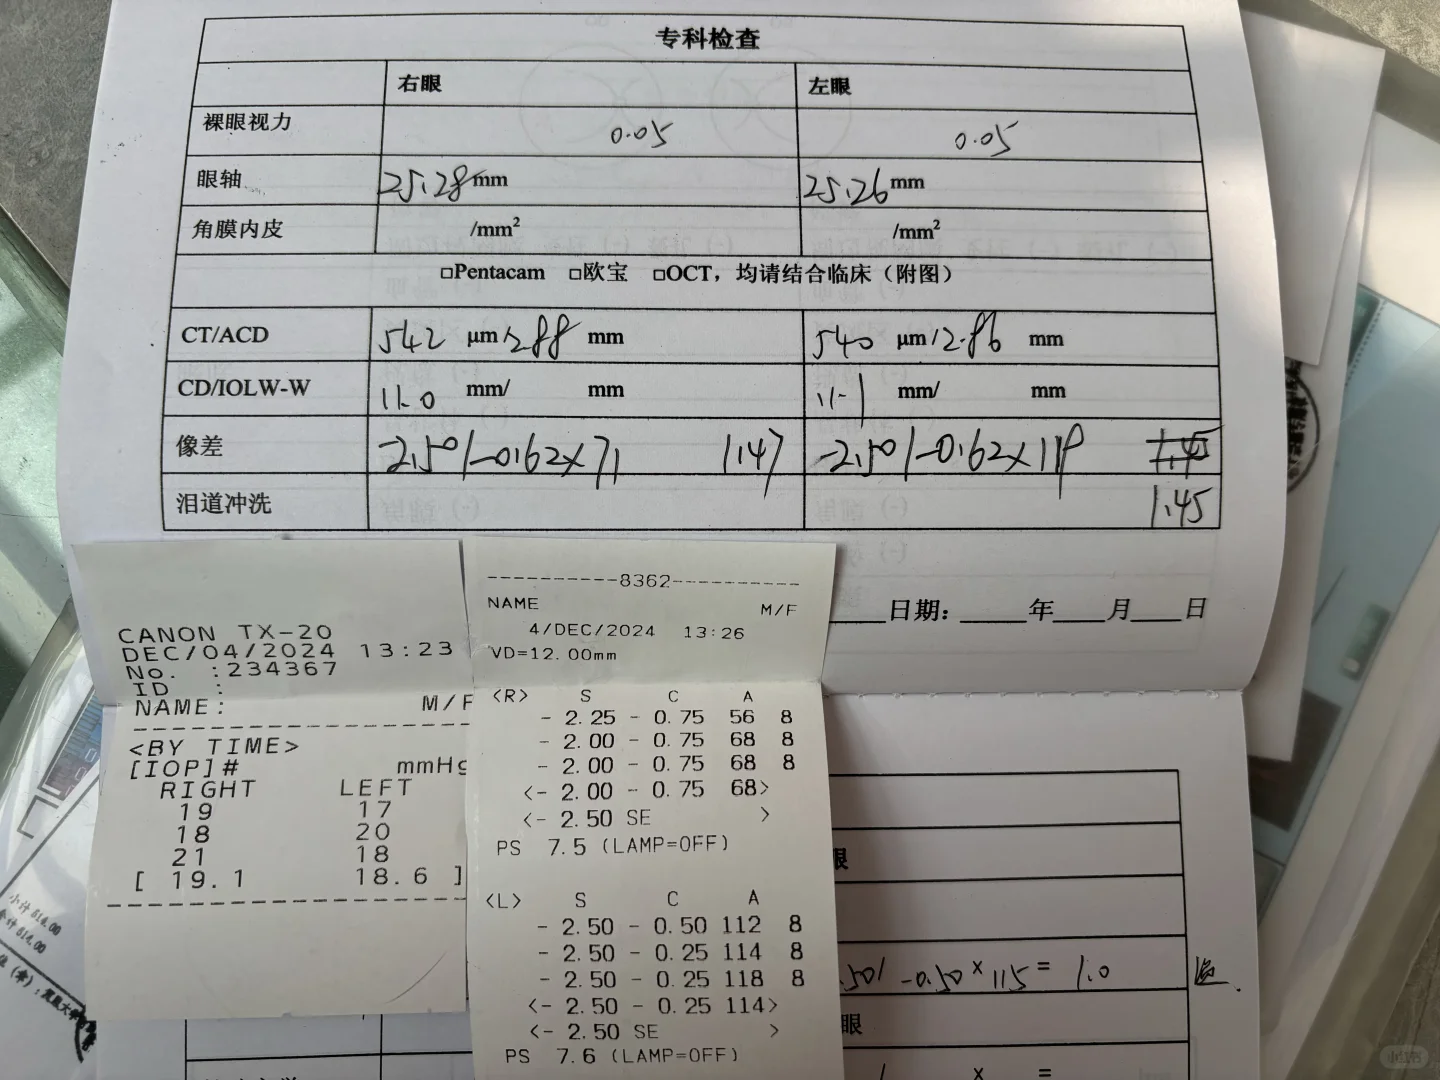 专科检查
右眼 左眼
裸眼视力 0.05 0.05
眼轴 25.28 mm 25.26 mm
角膜内皮 /mm² /mm²
□Pentacam □欧宝 □OCT，均请结合临床（附图）
CT/ACD 542 μm/2.88 mm 540 μm/2.86 mm
CD/IOLW-W 11.0 mm/ mm 11.1 mm/ mm
像差 -2.50/-0.62×71 1.47 -2.50/-0.62×119 1.45
泪道冲洗 1.45
日期：____年____月____日
CANON TX-20
DEC/04/2024 13:23
No. :234367
ID :
NAME: M/F
<BY TIME>
[IOP]# mmHg
RIGHT LEFT
19 17
18 20
21 18
[ 19.1 18.6 ]
----------8362----------
NAME M/F
4/DEC/2024 13:26
VD=12.00mm
<R> S C A
- 2.25 - 0.75 56 8
- 2.00 - 0.75 68 8
- 2.00 - 0.75 68 8
<- 2.00 - 0.75 68>
<- 2.50 SE >
PS 7.5 (LAMP=OFF)
<L> S C A
- 2.50 - 0.50 112 8
- 2.50 - 0.25 114 8
- 2.50 - 0.25 118 8
<- 2.50 - 0.25 114>
<- 2.50 SE >
PS 7.6 (LAMP=OFF)
眼
.50/ -0.50 × 115 = 1.0
眼
/ × =
小计 614.00
合计 614.00